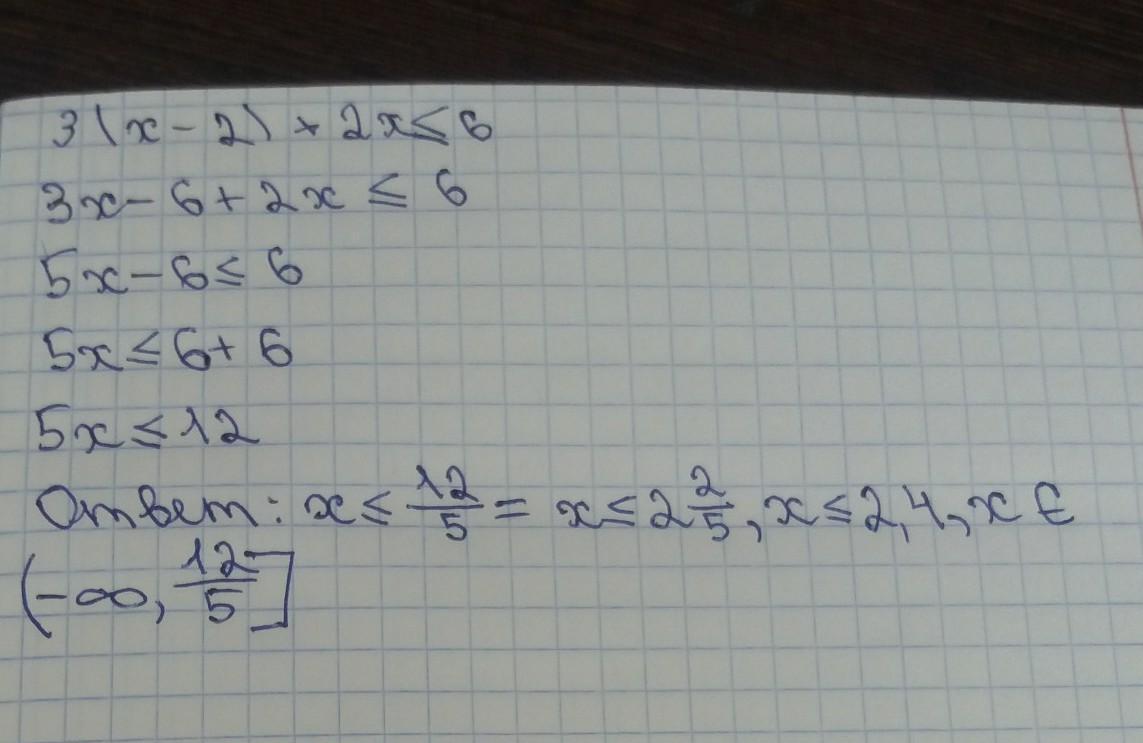 3(x - 2) + 2x ≤ 6
3x - 6 + 2x ≤ 6
5x - 6 ≤ 6
5x ≤ 6 + 6
5x ≤ 12
Ответ: x ≤ 12/5 = x ≤ 2 2/5, x ≤ 2,4, x ∈
(-∞, 12/5]